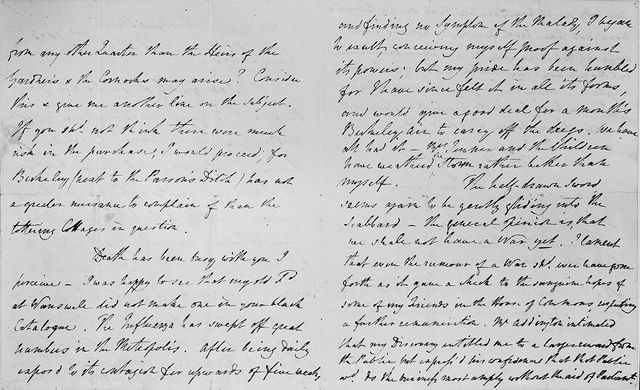 from any other Quarter than the Heirs of the
Gardners & the Cornocks may arise? Consider
this & give me another line on the subject.
If you shd. not think there were much
risk in the purchase, I would proceed, for
Berkeley (next to the Parson's Ditch) has not
a greater nuisance to complain of than the
tottering Cottages in question.
Death has been busy, with you I
perceive - I was happy to see that my old Fd.
at Wanswell did not make one in your black
Catalogue. The Influenza has swept off great
numbers in the Metropolis. After being daily
expos'd to its contagion for upwards of five weeks,
and finding no Symptom of the Malady, I began
to exult, conceiving myself proof against
its powers; but my pride has been humbled
for I have since felt it in all its forms,
and would give a good deal for a month's
Berkeley air to carry off the dregs, we have
all had it - Mrs. Jenner and the Children
have weather'd the Storm rather better than
myself. The half drawn Sword
seems again to be gently gliding into the
Scabbard - the general opinion is, that
we shall not have a War yet. I lament
that even the rumour of a War shd. ever have gone
forth as it gave a check to the sanguine hopes of
some of my Friends in the House of Commons respecting
a further remuneration. Mr Addington intimated
that my Discovery entitled me to a larger reward from
the Public but express'd his confidence that the Public
wd. do the  most amply without the aid of Parliament.